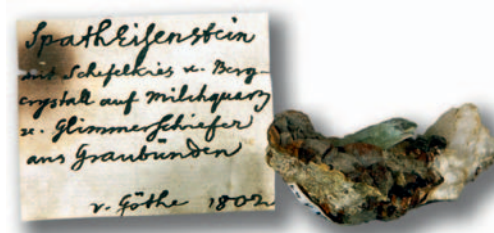 SpathEisenstein
mit Schefelkies u. Berg-
crystall auf Milchquarz
u. Glimmerschiefer
aus Graubünden
v. Göthe 1802